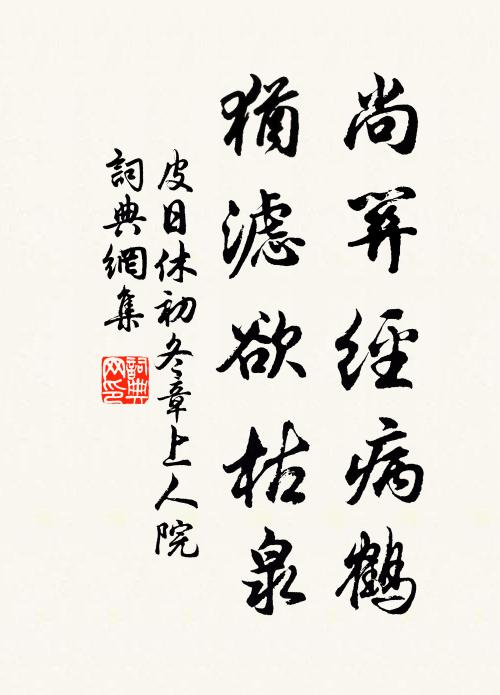 尚关經病鶴
猶濾欲枯泉
皮日休初冬章上人院
詞典網集
詞典網印